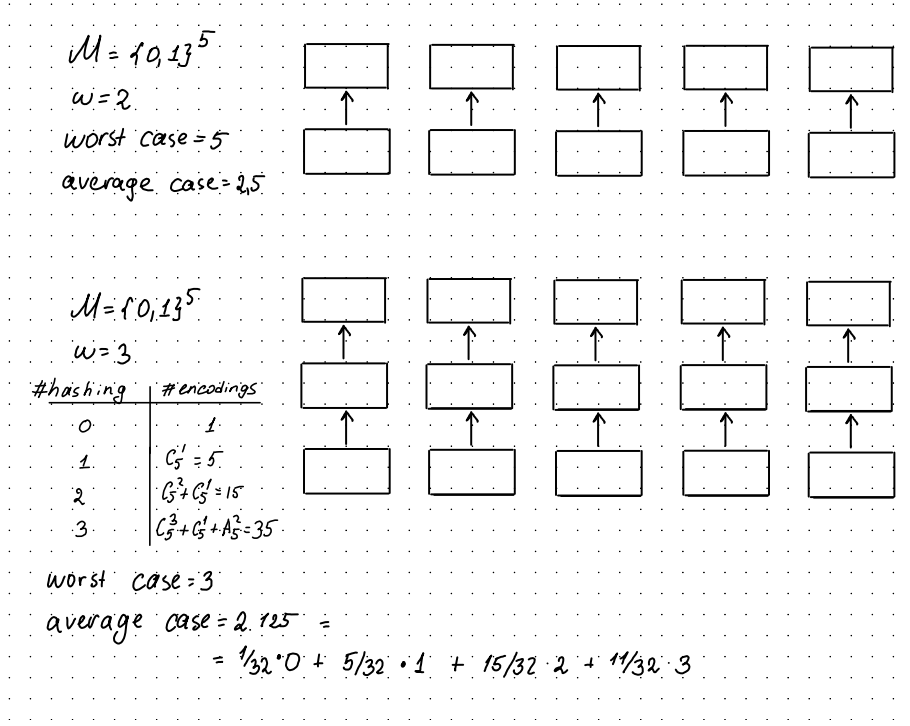 M = {0,1}⁵
w = 2
worst case = 5
average case = 2,5
M = {0,1}⁵
w = 3
#hashing | #encodings
0 | 1
1 | C₅¹ = 5
2 | C₅² + C₅¹ = 15
3 | C₅³ + C₅¹ + A₅² = 35
worst case = 3
average case = 2.125 =
= 1/32 · 0 + 5/32 · 1 + 15/32 · 2 + 11/32 · 3